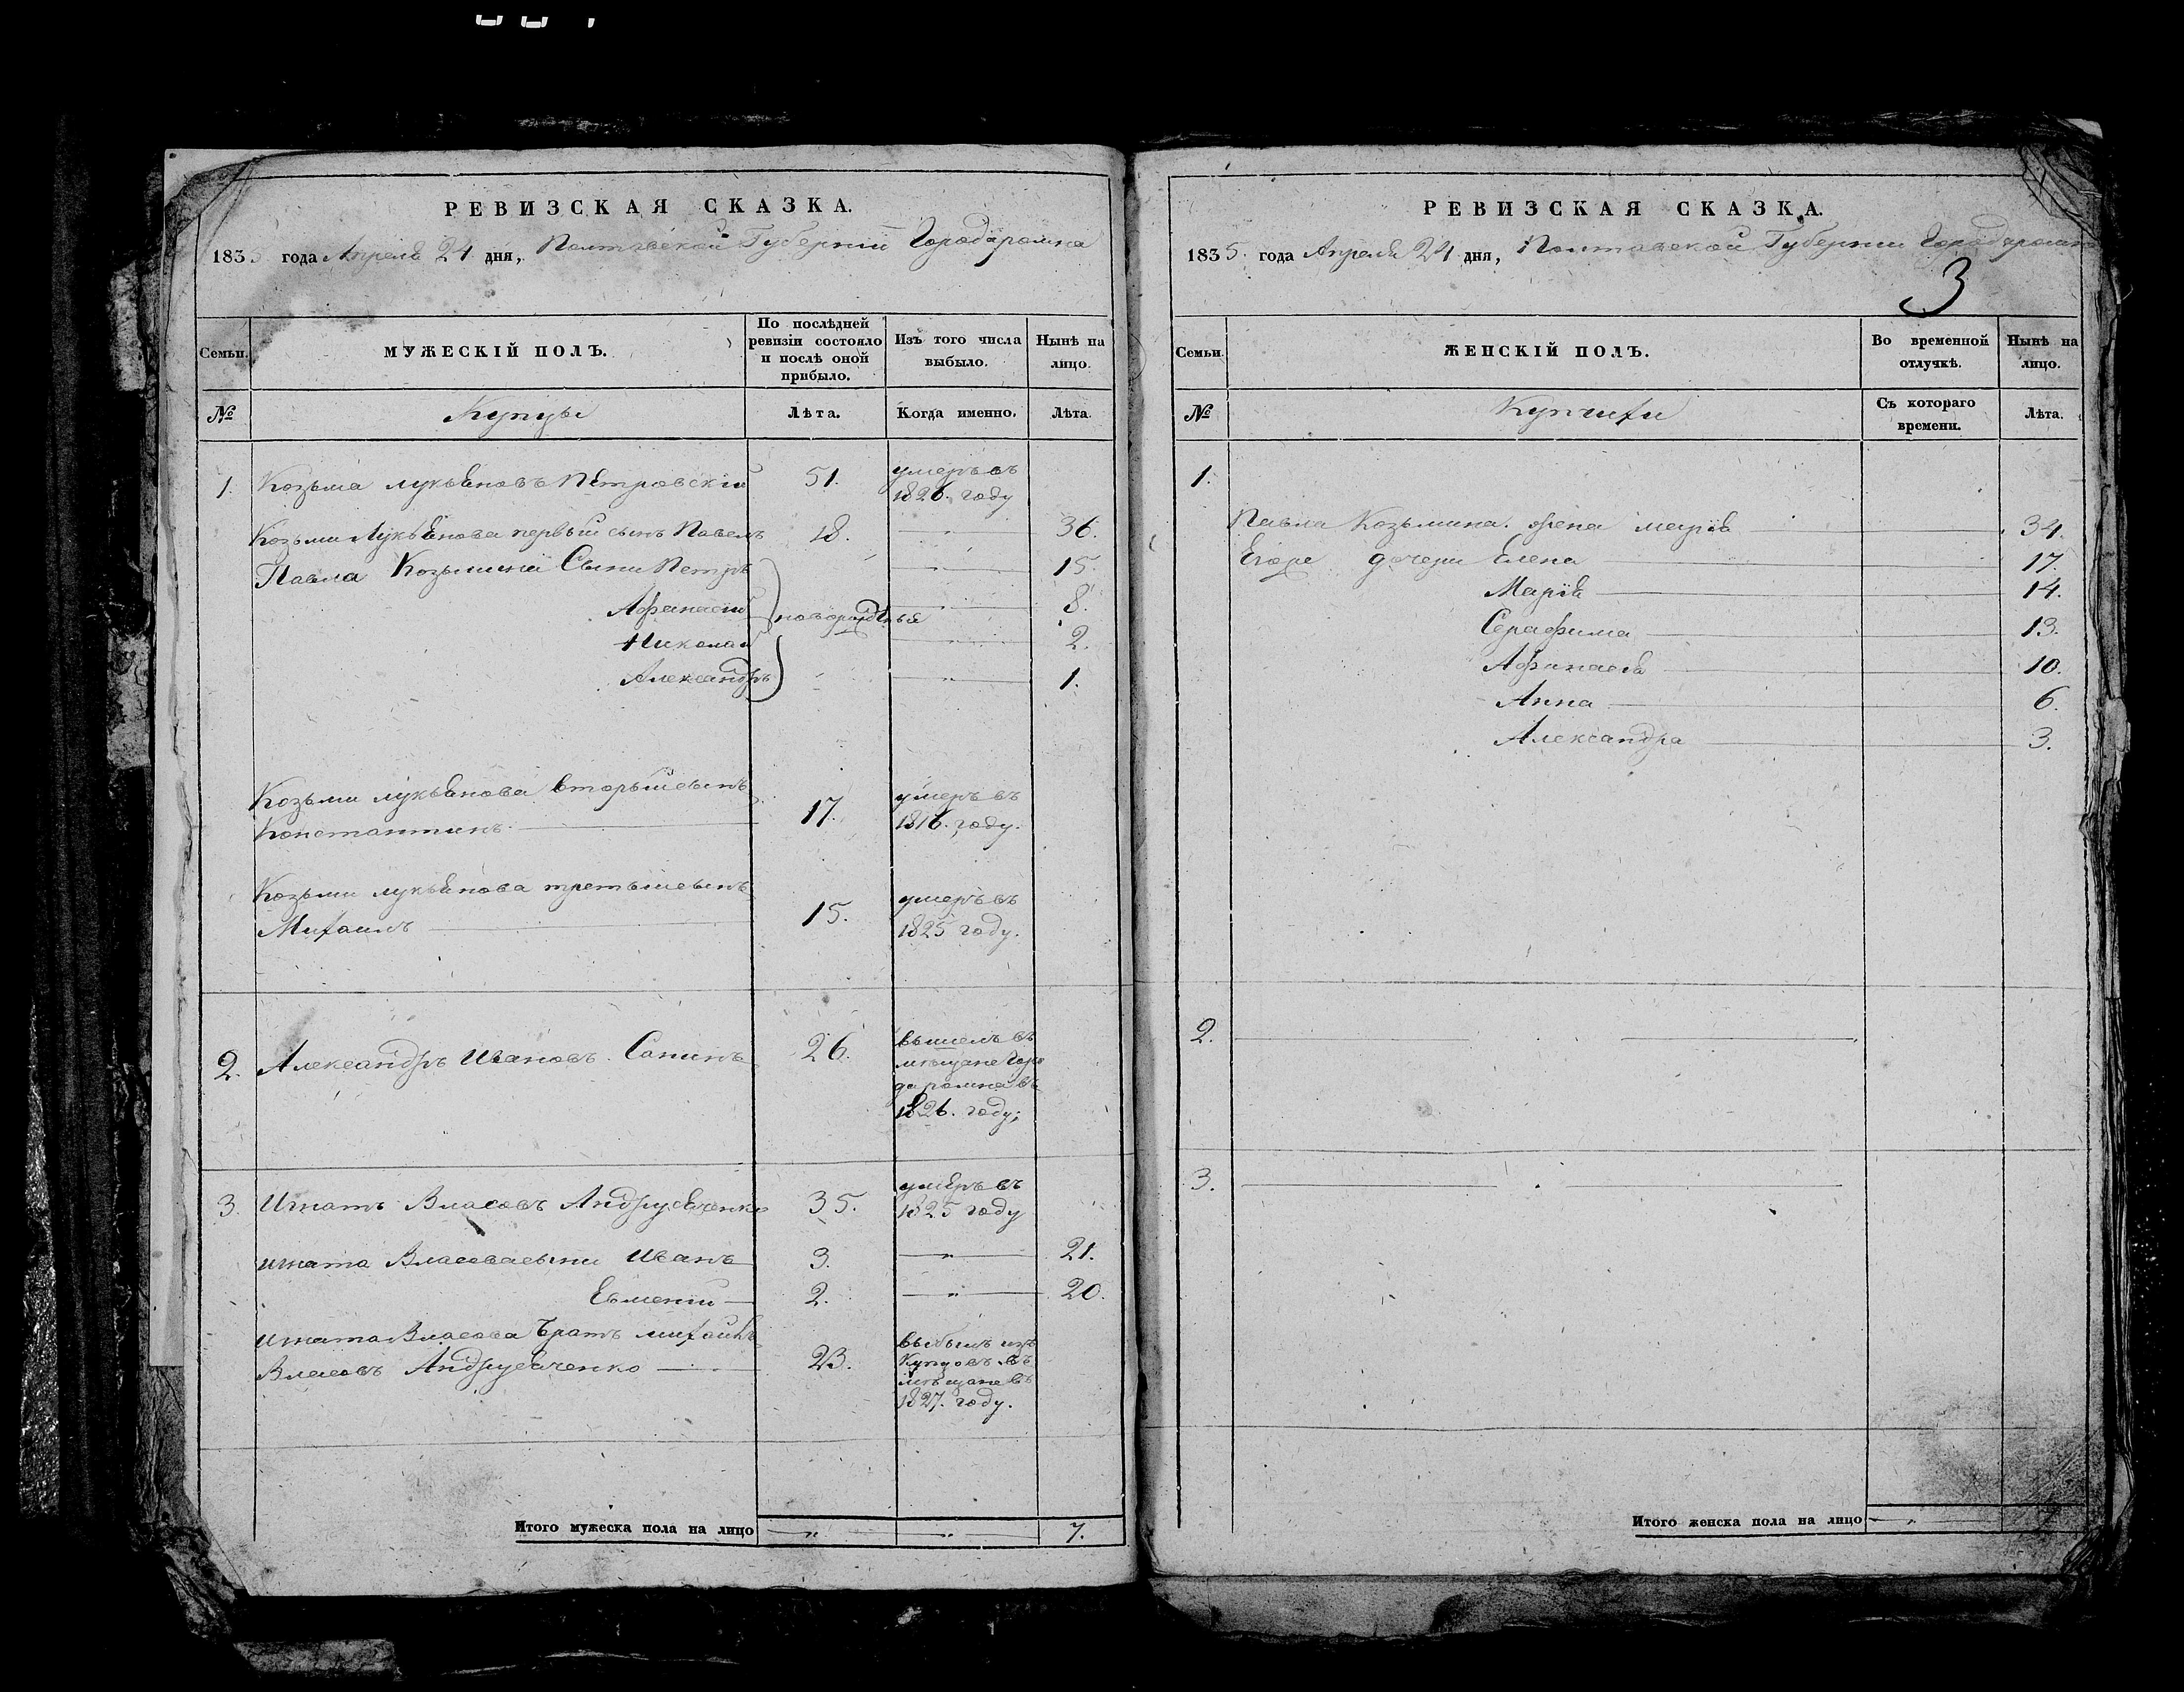 РЕВИЗСКАЯ СКАЗКА.
1835 года Апреля 24 дня, Полтавской Губернии Города ромна
Семьи.
МУЖЕСКІЙ ПОЛЪ.
По послѣдней ревизіи состояло и послѣ оной прибыло.
Изъ того числа выбыло.
Нынѣ на лицо.
№
Купцы
Лѣта.
Когда именно.
Лѣта.
1. Козьма лукьяновъ Петровскій 51. умеръ въ
1826. году
Козьми Лукьянова первый сынъ Павелъ 18. — 36.
Павла Козьмины Сыни Петръ — „ — 15.
Афанасій новорожденые — 8.
Николай — „ — 2.
Александръ — „ — 1.
Козьми лукьянова вторый сынъ
Константинъ — 17. умеръ въ
1816. году.
Козьми лукьянова третьий сынъ
Михаилъ — 15. умеръ въ
1825 году.
2. Александръ Ивановъ Санинъ 26. вышелъ въ
мѣщане Горо
да ромна въ
1826. году;
3. Игнатъ Власовъ Андрусвченко 35. умеръ въ
1825 году
игната Власова сыни Иванъ 3. — „ — 21.
Евмений — 2. — „ — 20.
игната Власова братъ михаилъ
Власовъ Андруевченко — 23. выбылъ изъ
Купцовъ въ
мѣщане въ
1827. году.
Итого мужеска пола на лицо — „ — — „ — 7.
РЕВИЗСКАЯ СКАЗКА.
1835. года Апреля 24 дня, Полтавской Губернии Города ромна
3
Семьи.
ЖЕНСКІЙ ПОЛЪ.
Во временной отлучкѣ.
Нынѣ на лицо.
№
Купчихи
Съ котораго времени.
Лѣта.
1.
Павла Козьмина жена марія — 34.
Егоре дочери Елена — 17.
Марія — 14.
Серафима — 13.
Афанасія — 10.
Анна — 6.
Александра — 3.
2. —
3. —
Итого женска пола на лицо — „ — 7